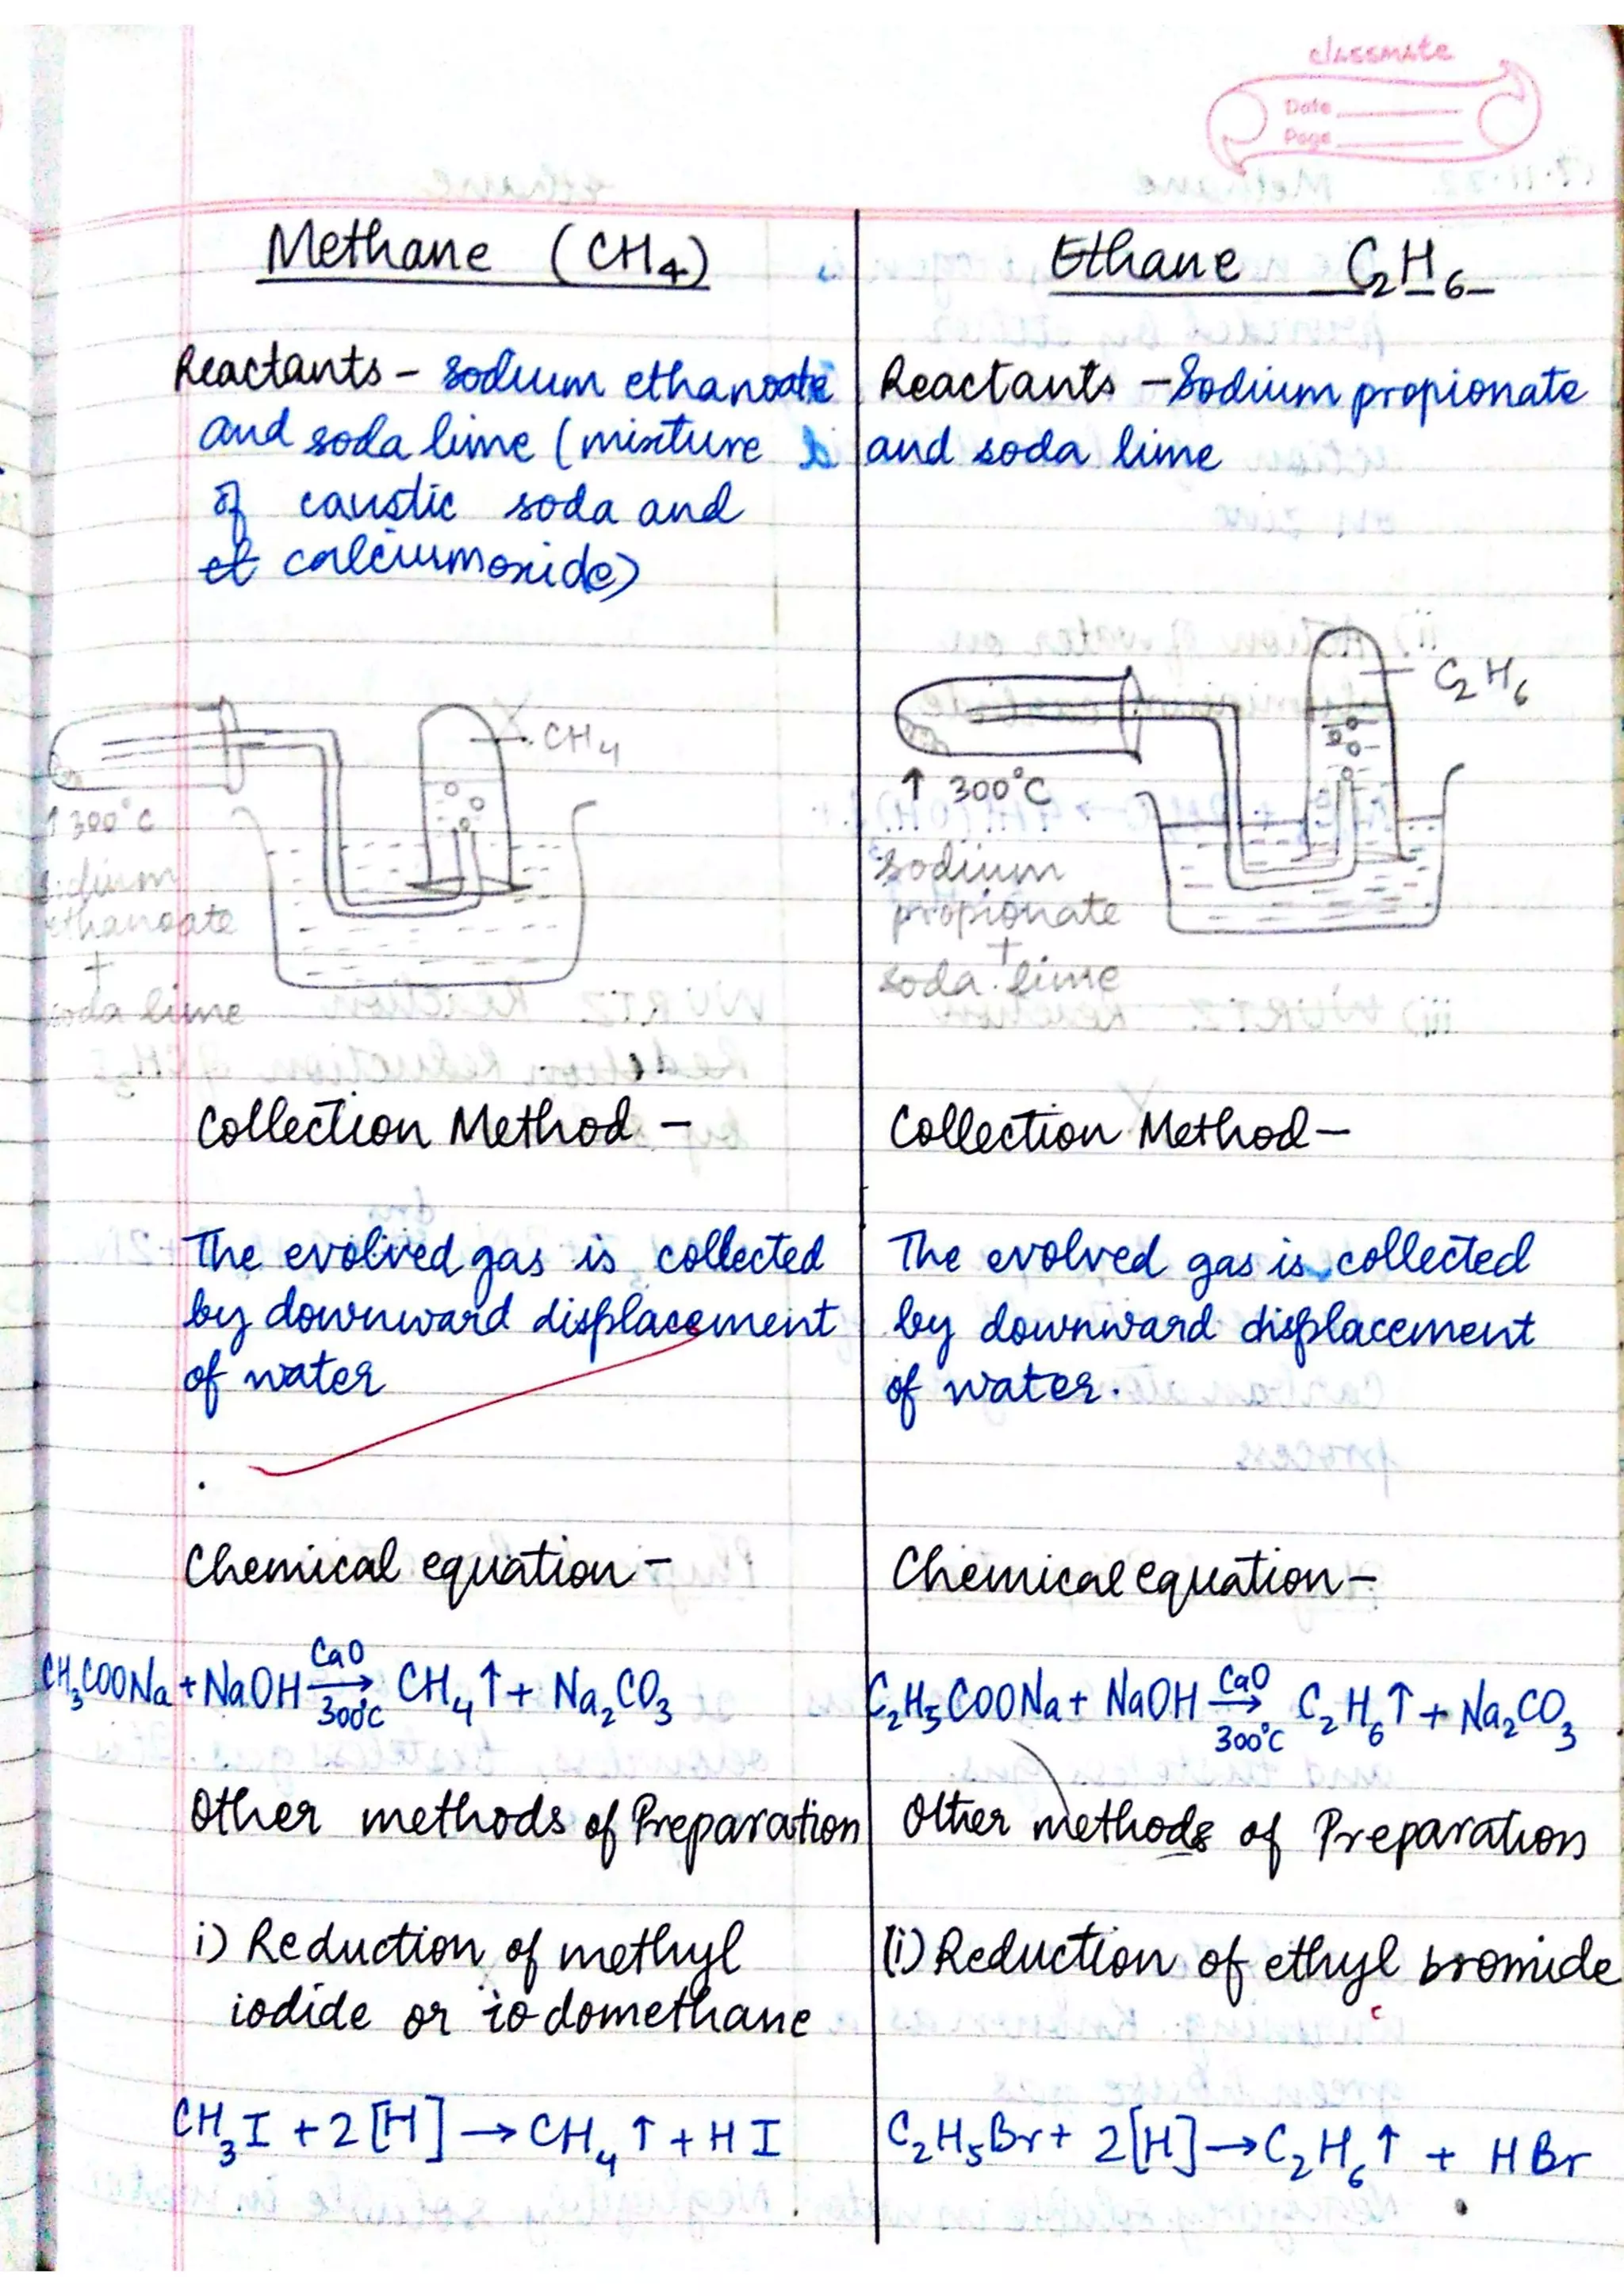 classmate
Date
Page
Methane (CH4)
Reactants - Sodium ethanoate
and soda lime (mixture
of caustic soda and
calciumoxide)
CH4
↑ 300°C
sodium
ethanoate
+
soda lime
Collection Method -
The evolved gas is collected
by downward displacement
of water
Chemical equation -
CH3COONa + NaOH CaO → 300°C CH4↑ + Na2CO3
Other methods of Preparation
i) Reduction of methyl
iodide or iodomethane
CH3I + 2[H] → CH4↑ + HI
Ethane C2H6
Reactants - Sodium propionate
and soda lime
C2H6
↑ 300°C
sodium
propionate
+
soda lime
Collection Method -
The evolved gas is collected
by downward displacement
of water.
Chemical equation -
C2H5COONa + NaOH CaO → 300°C C2H6↑ + Na2CO3
Other methods of Preparation
(i) Reduction of ethyl bromide
C2H5Br + 2[H] → C2H6↑ + HBr